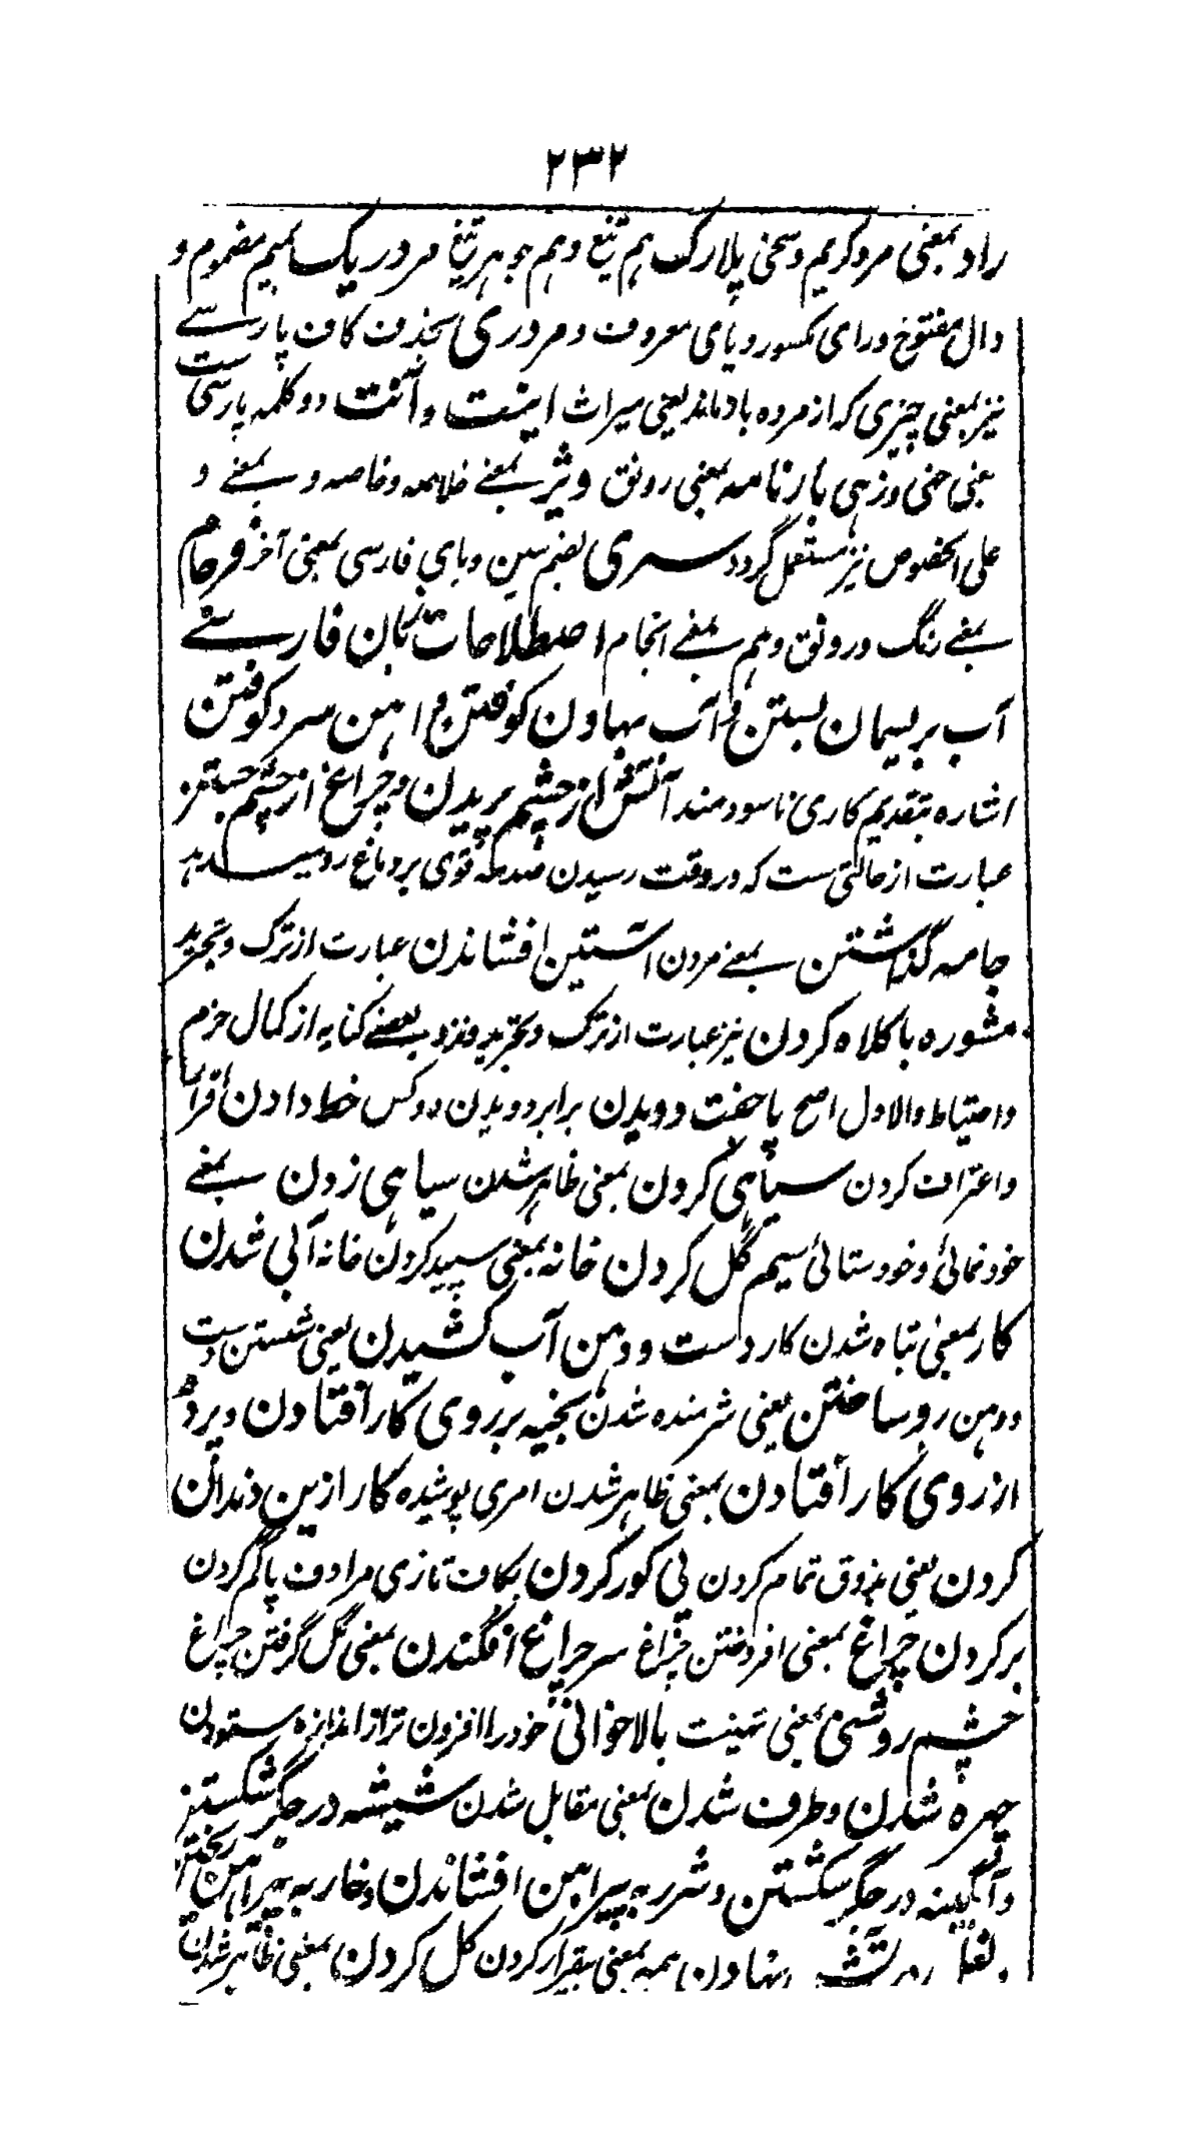 ۲۳۲
راد بمعنی مرد کریم و سخی پلارک هم تیغ و هم جوهر تیغ مردریک بمیم مضموم و
دال مفتوح و رای مکسور و یای معروف و مردری بحذف کاف پارسے
نیز بمعنی چیزی که از مرده باز ماند یعنی میراث اینت و آنت دو کلمه پارسی ست
بمعنی خنی و زهی بارنامه بمعنی رونق ویژه بمعنے خلاصه و خاصه و بمعنے و
علی الخصوص نیز مستعمل گردد سپری بضم سین و بای فارسی بمعنی آخر فرجام
بمعنے رنگ و رونق و هم بمعنے انجام اصطلاحات زبان فارسے
آب بریسمان بستن و آب بهاون کوفتن و آهن سرد کوفتن
اشاره بتقدیم کاری ناسودمند آتش از چشم پریدن و چراغ از چشم جستن
عبارت از حالتی ست که در وقت رسیدن صدمه قوی بر دماغ رو میدهد
جامه گذاشتن بمعنے مردن آستین افشاندن عبارت از ترک و تجرید
مشوره با کلاه کردن نیز عبارت از ترک و تجرید و نزد بعضے کنایه از کمال حزم
و احتیاط والاول اصح پا جفت دویدن برابر دویدن دو کس خط دادن اقرار
و اعتراف کردن سیاهی کردن بمعنی ظاهر شدن سیاهی زدن بمعنے
خود نمائی و خود ستائی سیم گل کردن خانه بمعنی سپید کردن خانه آبی شدن
کار بمعنی تباه شدن کار دست و دهن آب کشیدن یعنی شستن دست
و دهن رو ساختن یعنی شرمنده شدن بخیه بر روی کار افتادن و پرده
از روی کار افتادن بمعنی ظاهر شدن امری پوشیده کار از بن دندان
کردن یعنی بذوق تمام کردن پی کور کردن بکاف تازی مرادف پا گم کردن
بر کردن چراغ بمعنی افروختن چراغ سر چراغ افگندن بمعنی گل گرفتن چراغ
چشم روشنی بمعنی تهنیت بالا خوانی خود را افزون تر از اندازه ستودن
چهره شدن و طرف شدن بمعنی مقابل شدن شیشه در جگر شکستن
و آبگینه در جگر شکستن و شرر به پیراهن افشاندن و خار به پیراهن ریختن
و نعل در آتش نهادن همه بمعنی بیقرار کردن گل کردن بمعنی ظاهر شدن